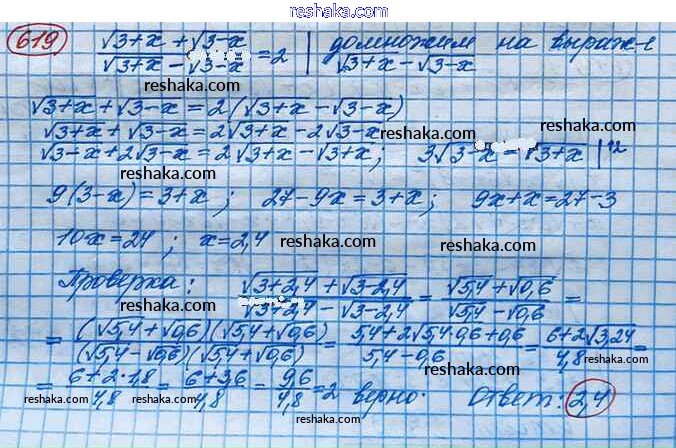 www.reshaka.com
619) (√3+x + √3-x)/(√3+x - √3-x) = 2 | домножим на выраж-е √3+x - √3-x
reshaka.com
√3+x + √3-x = 2(√3+x - √3-x)
√3+x + √3-x = 2√3+x - 2√3-x reshaka.com
√3-x + 2√3-x = 2√3+x - √3+x; 3√3-x = √3+x |^2
reshaka.com reshaka.com
9(3-x) = 3+x; 27-9x = 3+x; 9x+x = 27-3
10x = 24; x = 2,4 reshaka.com reshaka.com
Проверка: (√3+2,4 + √3-2,4)/(√3+2,4 - √3-2,4) = (√5,4 + √0,6)/(√5,4 - √0,6) =
reshaka.com reshaka.com
= (√5,4+√0,6)(√5,4+√0,6)/(√5,4-√0,6)(√5,4+√0,6) = (5,4+2√5,4·0,6+0,6)/(5,4-0,6) = (6+2√3,24)/4,8 =
reshaka.com reshaka.com
= (6+2·1,8)/4,8 = (6+3,6)/4,8 = 9,6/4,8 = 2 верно. Ответ: 2,4
reshaka.com reshaka.com reshaka.com
www.reshaka.com